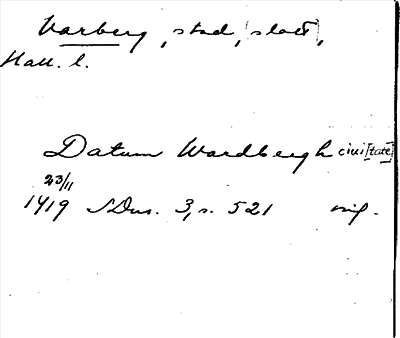 Varberg, stad, slott,
Hall. l.
Datum Wardbergh civi[tate]
23/11
1419 SDns. 3, s. 521 orig.